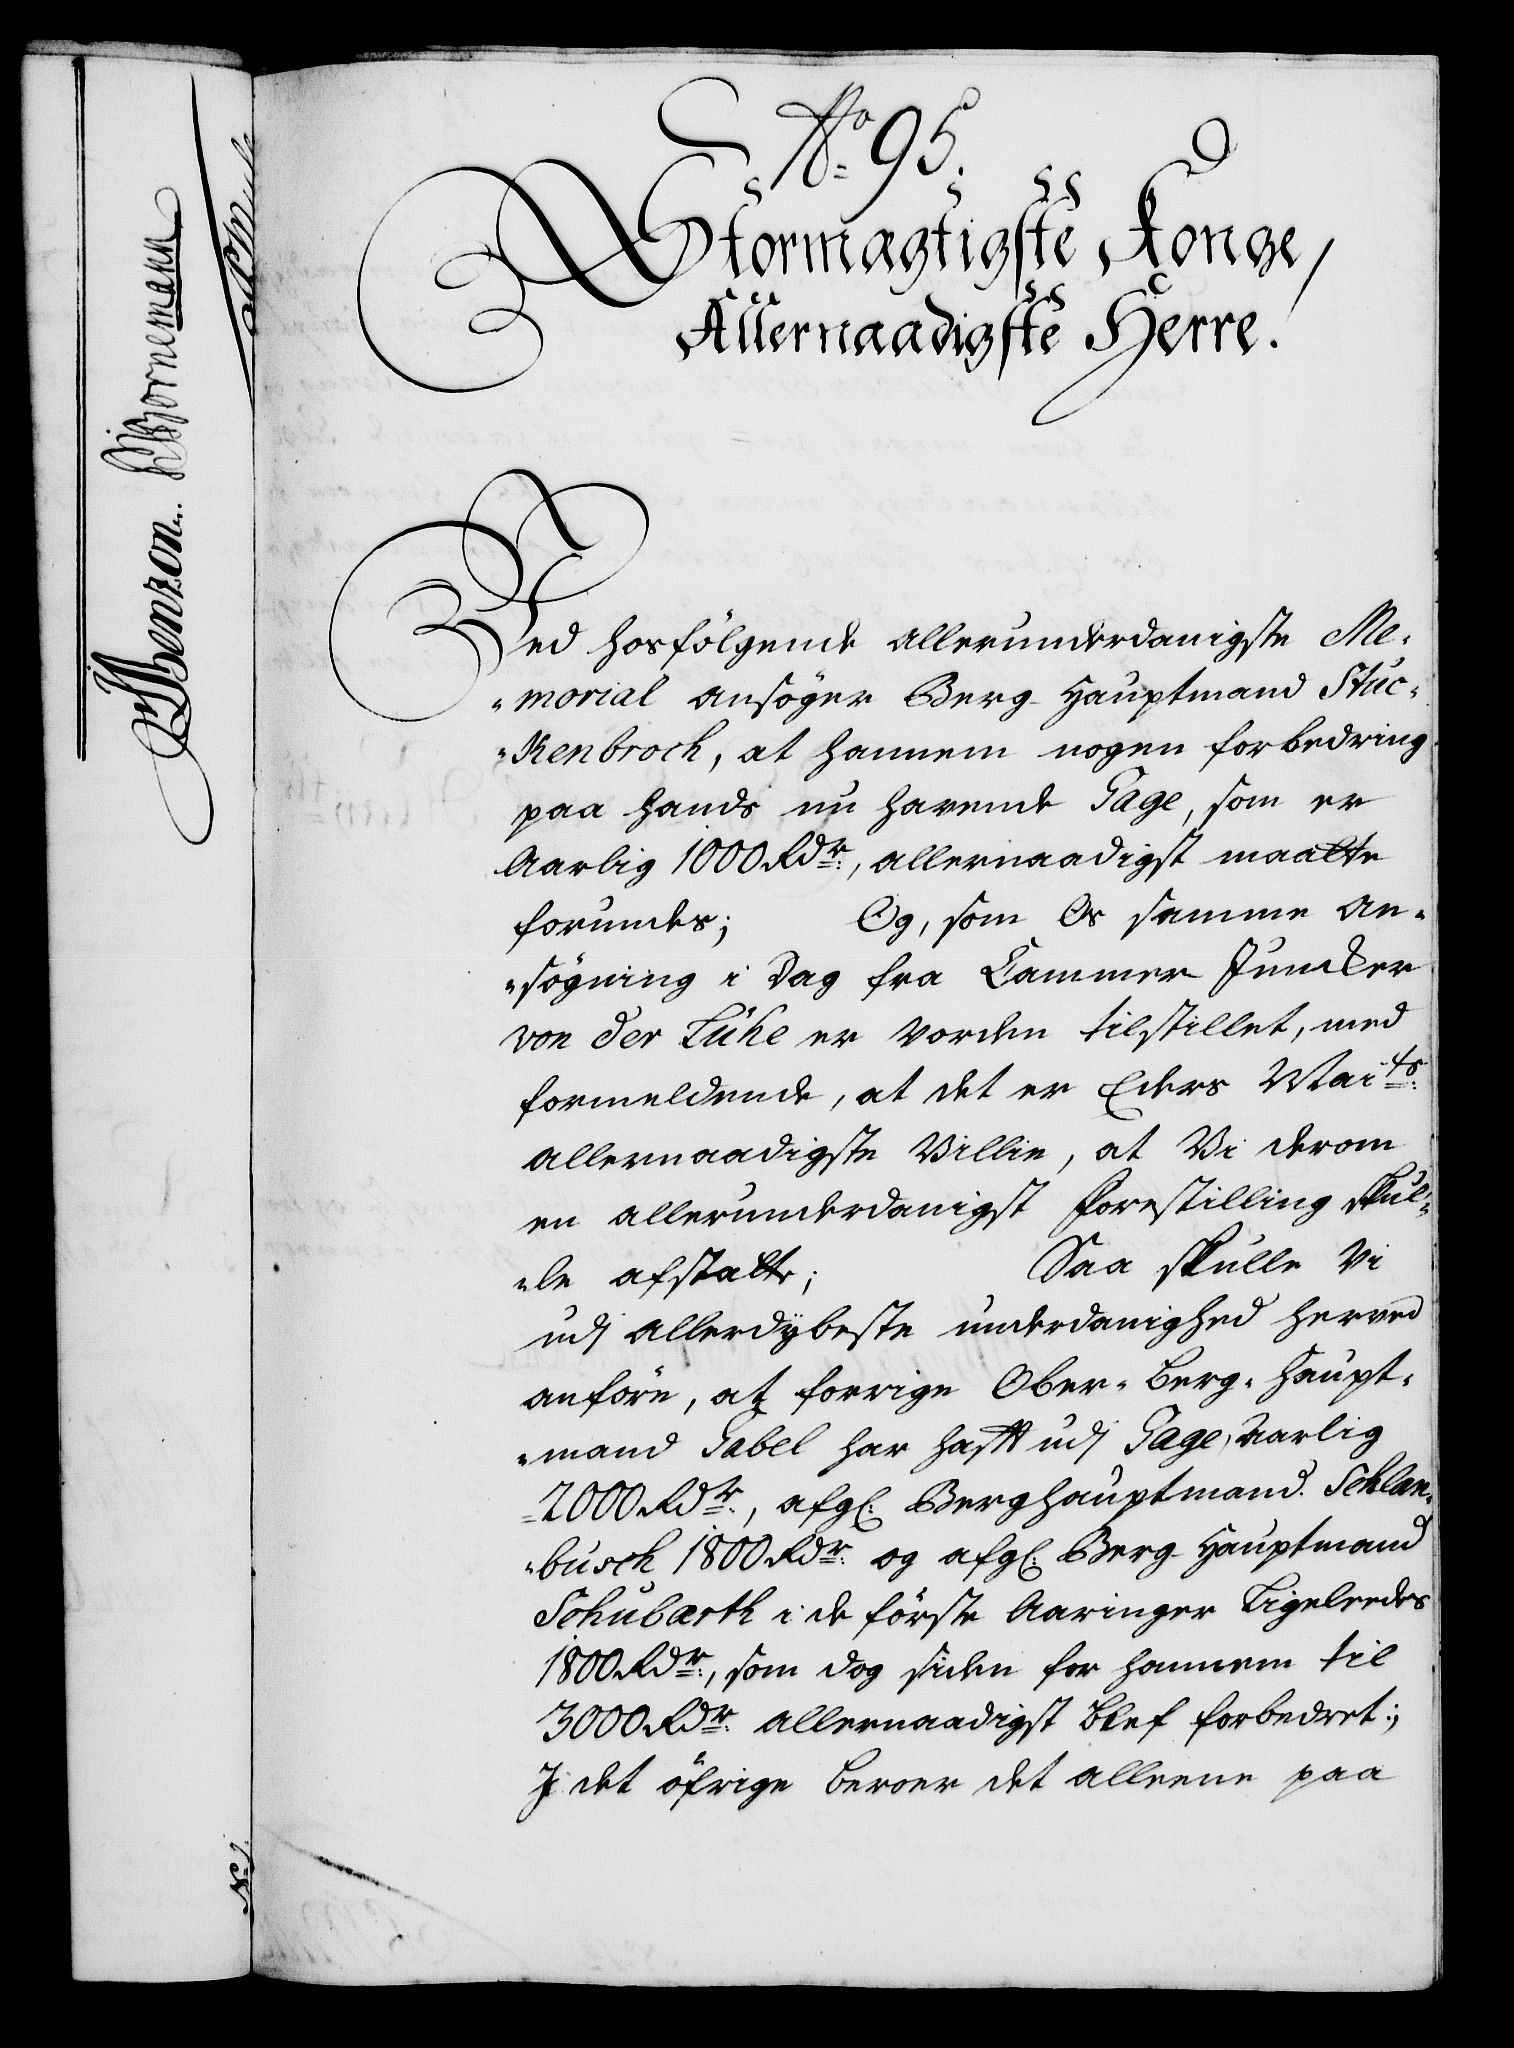 No 95.
Stormægtigste Konge,
Allernaadigste Herre.
Ved hosfölgende allerunderdanigste Me-
-morial ansöger Berg Hauptmand Stuc-
-kenbrock, at hannem nogen forbedring
paa hands nu havende Gage, som er
Aarlig 1000 Rdr:, allernaadigst maatte
forundes; Og, som Os samme An-
-sögning i Dag fra Cammer Juncker
von der Lühe er vorden tilstillet, med
formeldende, at det er Eders Maits:
allernaadigste Villie, at Vi derom
en allerunderdanigst Forestilling skul-
-le afstatte; Saa skulle Vi
udj allerdÿbeste underdanighed herved
anföre, at forrige Ober-Berg-Haupt-
-mand Gabel har hafft udj Gage, Aarlig
2000 Rdr:, afgl: Berghauptmand Schlan-
-busch 1800 Rdr: og afgl: Berg Hauptmand
Schubarth i de förste Aaringer Ligeleedes
1800 Rdr:, som dog siden for hannem til
3000 Rdr: allernaadigst blef forbedret;
J det öfrige beroer det alleene paa
Benzon. Bornemann
No 1.